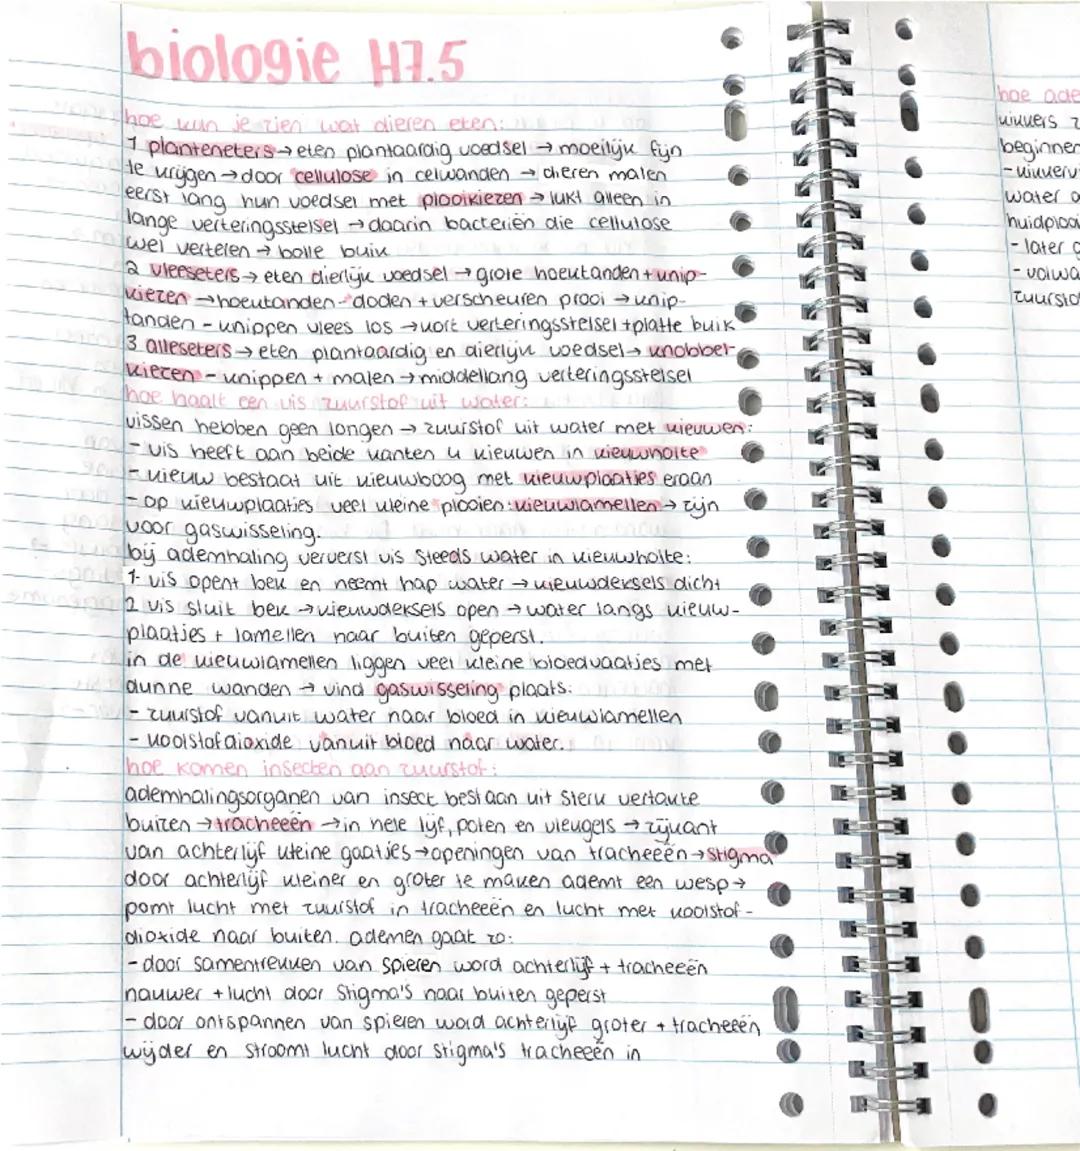 biologie H7.5
hoe kun je zien wat dieren eten:
1 planteneters → eten plantaardig voedsel → moeilijk fijn
te krijgen → door cellulose in celwanden → dieren malen
eerst lang hun voedsel met plooikiezen → lukt alleen in
lange verteringsstelsel → daarin bacteriën die cellulose
wel verteren → bolle buik
2 vleeseters → eten dierlijk voedsel → grote hoektanden + knip-
kiezen → hoektanden - doden + verscheuren prooi → knip-
tanden - knippen vlees los → kort verteringsstelsel + platte buik
3 alleseters → eten plantaardig en dierlijk voedsel → knobbel-
kiezen - knippen + malen → middellang verteringsstelsel
hoe haalt een vis zuurstof uit water:
vissen hebben geen longen → zuurstof uit water met kieuwen:
- vis heeft aan beide kanten 4 kieuwen in kieuwholte
- kieuw bestaat uit kieuwboog met kieuwplaatjes eraan
- op kieuwplaatjes veel kleine plooien: kieuwlamellen → zijn
voor gaswisseling.
bij ademhaling ververst vis steeds water in kieuwholte:
1- vis opent bek en neemt hap water → kieuwdeksels dicht
2 vis sluit bek → kieuwdeksels open → water langs kieuw-
plaatjes + lamellen naar buiten geperst.
in de kieuwlamellen liggen veel kleine bloedvaatjes met
dunne wanden → vind gaswisseling plaats:
- zuurstof vanuit water naar bloed in kieuwlamellen
- koolstofdioxide vanuit bloed naar water.
hoe komen insecten aan zuurstof:
ademhalingsorganen van insect bestaan uit sterk vertakte
buizen → tracheeën → in hele lijf, poten en vleugels → zijkant
van achterlijf kleine gaatjes → openingen van tracheeën → stigma
door achterlijf kleiner en groter te maken ademt een wesp →
pomt lucht met zuurstof in tracheeën en lucht met koolstof-
dioxide naar buiten. ademen gaat zo:
- door samentrekken van spieren word achterlijf + tracheeën
nauwer + lucht door stigma's naar buiten geperst
- door ontspannen van spieren word achterlijf groter + tracheeën
wijder en stroomt lucht door stigma's tracheeën in
hoe ade
kikkers z
beginnen
- kikkerv
water
huidplooi
- later g
- volwa
zuursto